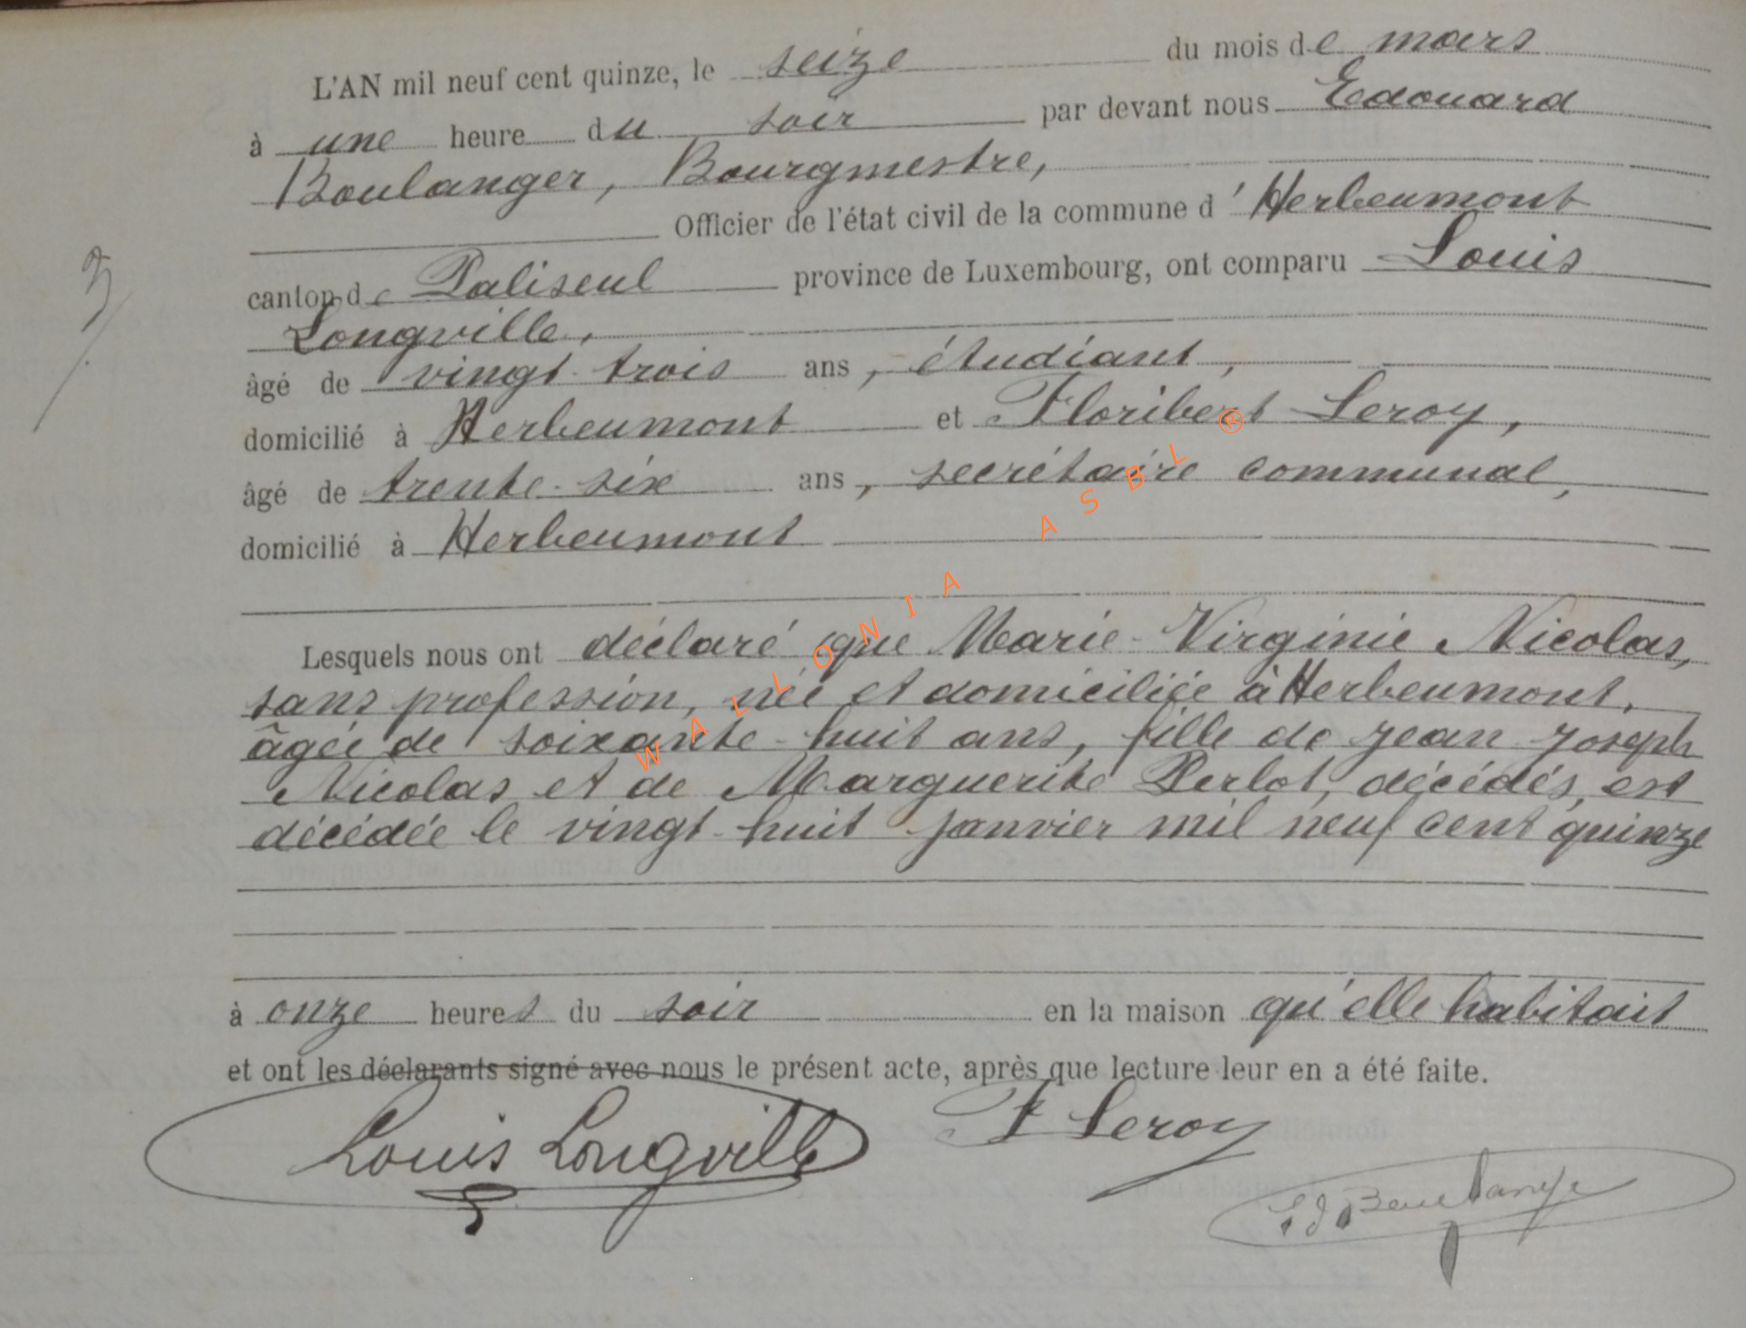 L'AN mil neuf cent quinze, le seize du mois de mars
à une heure du soir par devant nous Edouard
Boulanger, Bourgmestre,
Officier de l'état civil de la commune d'Herbeumont
canton de Paliseul province de Luxembourg, ont comparu Louis
Longville,
âgé de vingt-trois ans, étudiant,
domicilié à Herbeumont et Floribert Leroy,
âgé de trente-six ans, secrétaire communal,
domicilié à Herbeumont
Lesquels nous ont déclaré que Marie-Virginie Nicolas,
sans profession, née et domiciliée à Herbeumont,
âgée de soixante-huit ans, fille de Jean Joseph
Nicolas et de Marguerite Perlot, décédés, est
décédée le vingt-huit janvier mil neuf cent quinze
à onze heures du soir en la maison qu'elle habitait
et ont les déclarants signé avec nous le présent acte, après que lecture leur en a été faite.
Louis Longville F Leroy
Ed Boulanger
WALLONIA ASBL ®